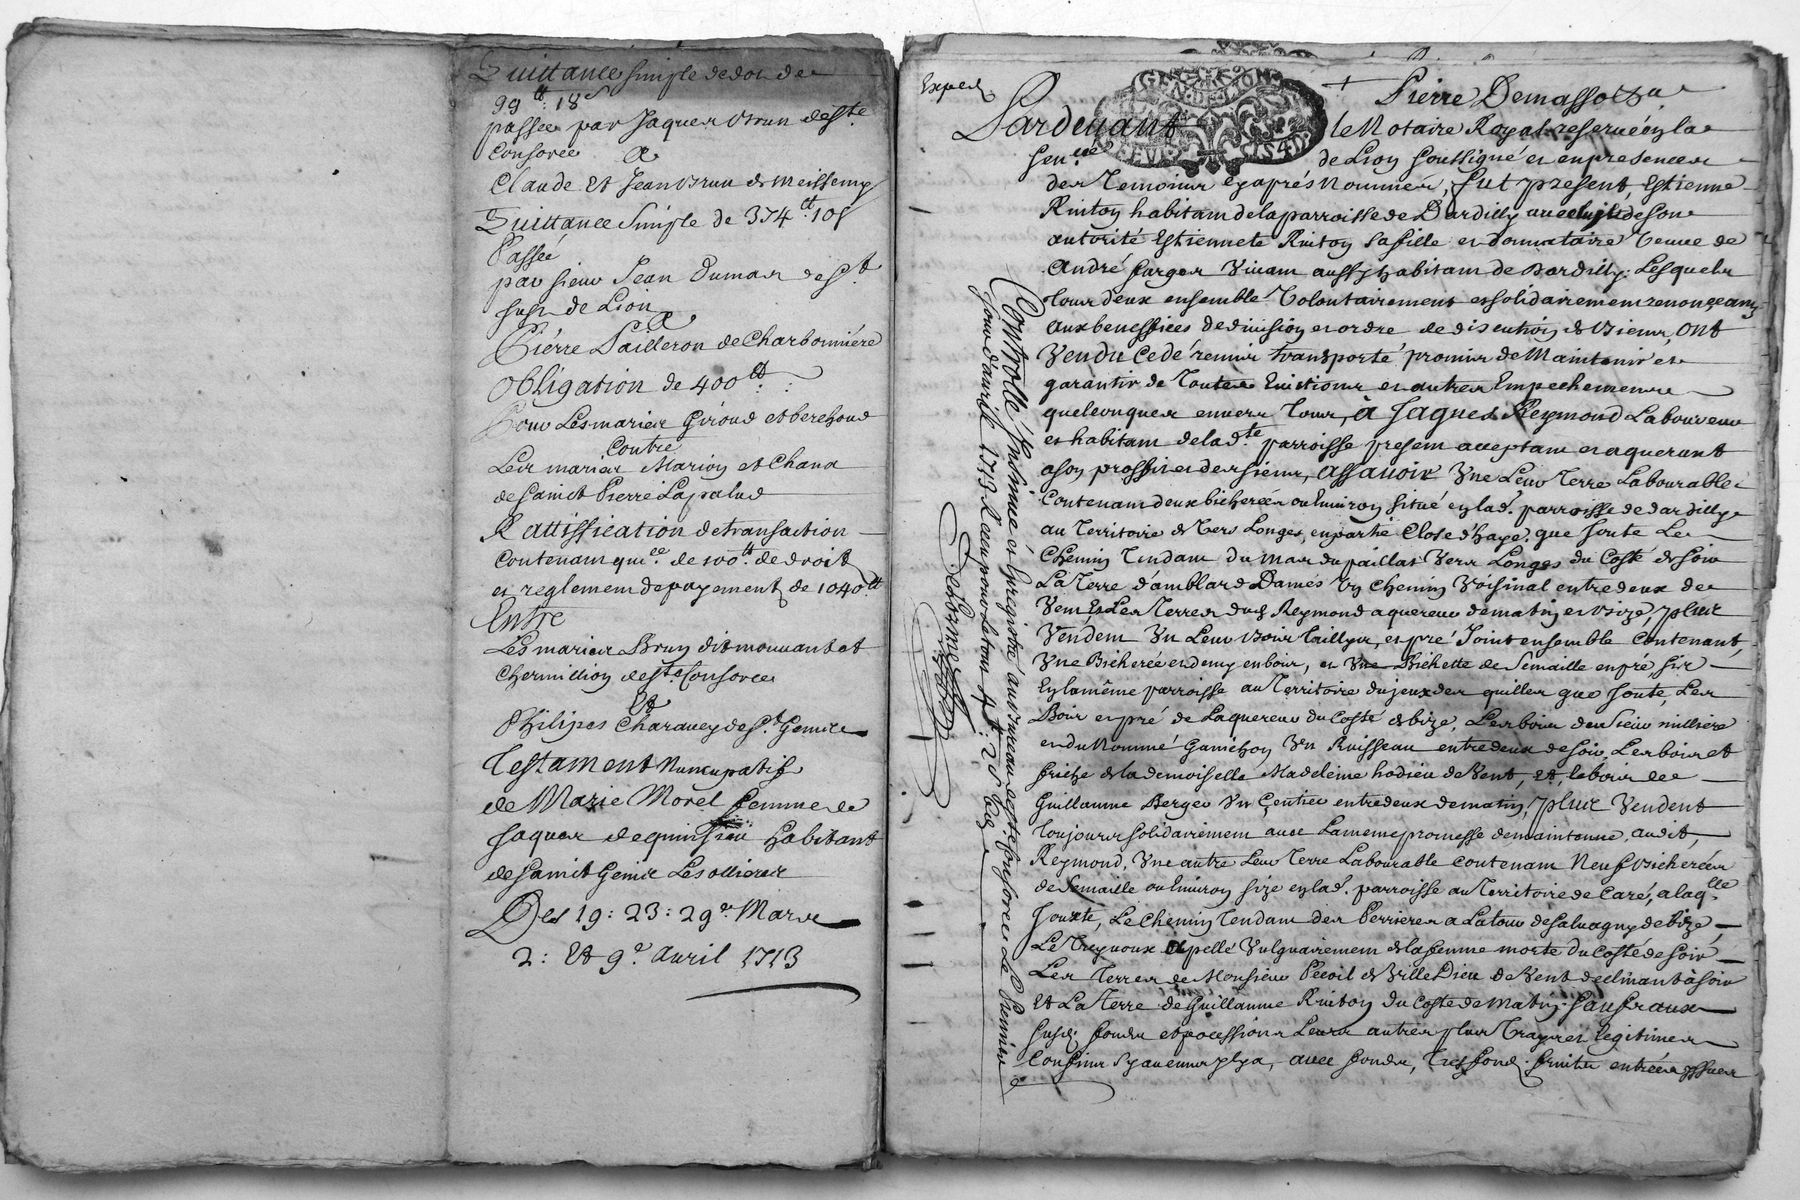 Quittance simple de dot de
99tt: 18s
passée par Jaques Brun de Ste
Consorce
A
Claude Et Jean Brun de Meissemy
Quittance Simple de 374tt: 10s
Passée
par sieur Jean Dumas de St
Just de Lion
A
Pierre Pailleron de Charbonnière
Obligation de 400tt:
Pour Les mariés Giroud et berchoud
Contre
Les mariés Marion et Chana
de Sainct Pierre Lapalud
Rattiffication de transaction
Contenant quce. de 100tt. de droit
et reglement de payement de 1040tt
Entre
Les mariés Brun dit mouvant et
Chermillion de Ste Consorce
Et
Philipes Charavey de St. Genis
Testament Nuncupatif
de Marie Morel femme de
Jaques de quinsieu habitant
de Sainct Genis Les ollieres
Des 19: 23: 29e. Mars
2: Et 9e. Avril 1713
Exped
GENERALITE DE LYON
Pardevant
Pierre Demasso
le Notaire Royal reservé en la
Senee
de Lion soussigné et en presence
des Temoins cy aprés Nommés, fut present, Estienne
Rinton habitant de la parroisse de Dardilly avec luy et de son
autorité Estiennete Rinton sa fille et donnataire Veuve de
André farges Vivant aussy habitant de Dardilly; Lesquels
tous deux ensemble Volontairement et solidairement renonceant
aux beneffices de division et ordre de discution de biens, ONT
Vendu Cedé remis transporté promis de Maintenir et
garantir de Toutes Evictions et autres Empechements
quelconques envers tous, à Jaques Reymond Laboureur
et habitant de ladte parroisse present acceptant et aquerant
a son proffit et des siens, assavoir Une Leur Terre Labourable
Contenant deux bicherées ou Environ Situé en lad. parroisse de dardilly
au Territoire de Vers Longes, en partie Close d'haye, que Joute Le
Chemin Tendant du Mas du paillas Vers Longes du Costé de Soir
La Terre d'amblard Damés Un Chemin Voisinal entre deux de
Vent, Et Les Terres dud Reymond aquereur de matin et bize, plus
Vendent Un Leur Bois Taillyx, et pré Joint ensemble Contenant,
Une Bicherée et demy en bois, et Une Bichette de Semaille en pré, Sis
En la même parroisse au Territoire du jeux des quilles que Joute, Les
Bois et pré de Laquereur du Costé de bize, Les bois du Sieur milliere
et du Nommé Ganichon Un Ruisseau entre deux de soir, Les bois et
friche de la demoiselle Madeleine hodieu de Vent, et, le bois de
Guillaume Berger Un Sentier entre deux de matin, plus Vendent
Toujours solidairement avec La meme promesse de maintenue, audit,
Reymond, Une autre Leur Terre Labourable contenant Neuf Bicherées
de Semaille ou Environ size en lad. parroisse au Territoire de Caré, a laqlle
Jouxte, Le Chemin Tendant des Perrieres a La tour de Salvagny de bize,
Le Treyvoux apellé Vulguairement de la femme morte du Costé de Soir
Les Terres de Monsieur Pecoil de Ville Dieu de Vent declinant à soir
Et La Terre de Guillaume Rinton du Coste de Matin; Sauf aux
Susd; fonds et possessions Leurs autres plus Vrays et legitimes
Confins Sy aucuns y a, avec fonds, Tresfond; fruits entrées issues
Controllé Insinué et Enregistré au Bureau de Ste. Consorce Le Premier
Jour d'avril 1713 Receu pour le tout
Delorme